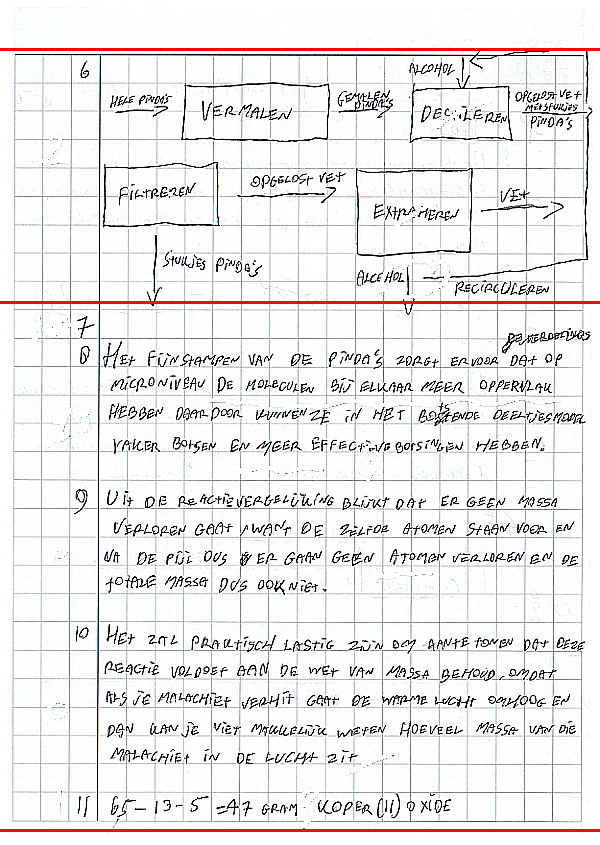 6
ALCOHOL
HELE PINDA'S
VERMALEN
GEMALEN PINDA'S
OPGELOST VET
MET STUKJES
PINDA'S
FILTREREN
OPGELOST VET
EXTRAHEREN
VET
STUKJES PINDA'S
ALCOHOL
RECIRCULEREN
7
8 HET FIJNSTAMPEN VAN DE PINDA'S ZORGT ERVOOR DAT OP
MICRONIVEAU DE MOLECULEN BIJ ELKAAR MEER OPPERVLAK
HEBBEN DAARDOOR KUNNEN ZE IN HET BOTSENDE DEELTJESMODEL
VAKER BOTSEN EN MEER EFFECTIEVE BOTSINGEN HEBBEN.
9 UIT DE REACTIEVERGELIJKING BLIJKT DAT ER GEEN MASSA
VERLOREN GAAT, WANT DE ZELFDE ATOMEN STAAN VOOR EN
NA DE PIJL DUS ER GAAN GEEN ATOMEN VERLOREN EN DE
TOTALE MASSA DUS OOK NIET.
10 HET ZAL PRAKTISCH LASTIG ZIJN OM AAN TE TONEN DAT DEZE
REACTIE VOLDOET AAN DE WET VAN MASSA BEHOUD, OMDAT
ALS JE MALACHIET VERHIT GAAT DE WARME LUCHT OMHOOG EN
DAN KAN JE NIET MAKKELIJK WETEN HOEVEEL MASSA VAN DIE
MALACHIET IN DE LUCHT ZIT
11 65-13-5 = 47 GRAM KOPER(II)OXIDE